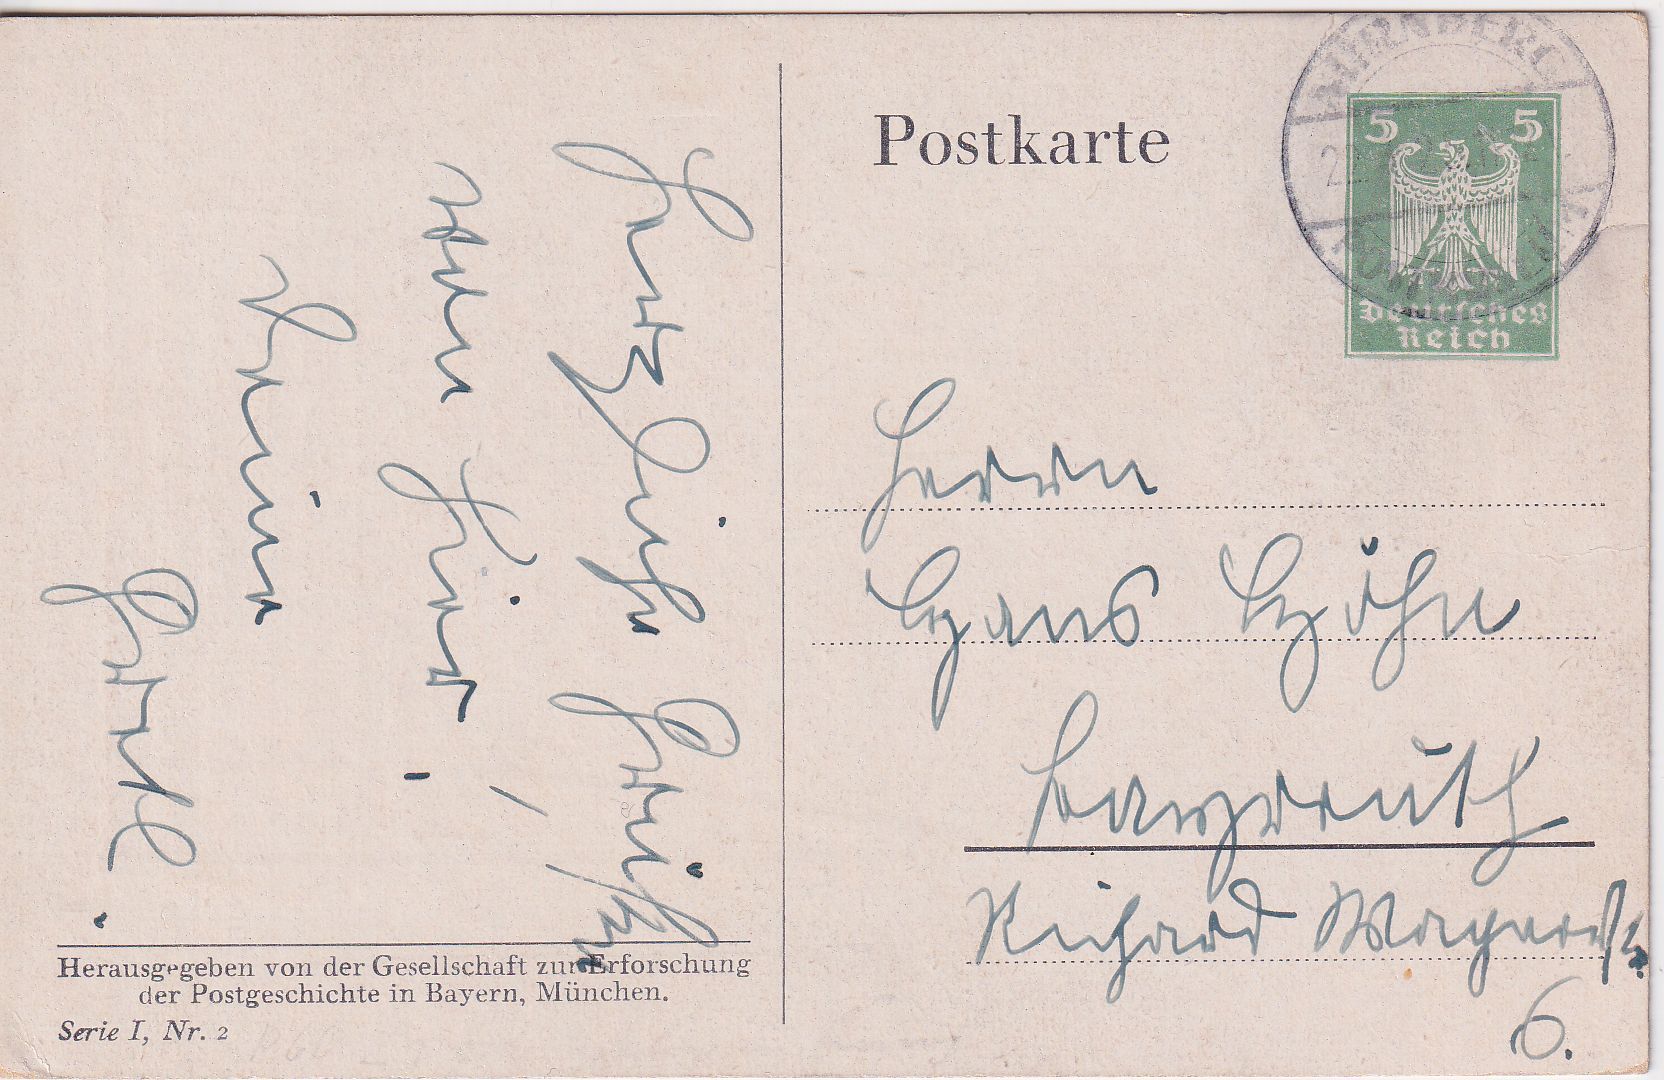 Herzliche Grüße
von hier!
Deine
Gretl.
Herausgegeben von der Gesellschaft zur Erforschung
der Postgeschichte in Bayern, München.
Serie I, Nr. 2
Postkarte
NÜRNBERG
5 5
Deutsches
Reich
Herrn
Hans Höhn
Bayreuth
Richard Wagnerstr.
6.